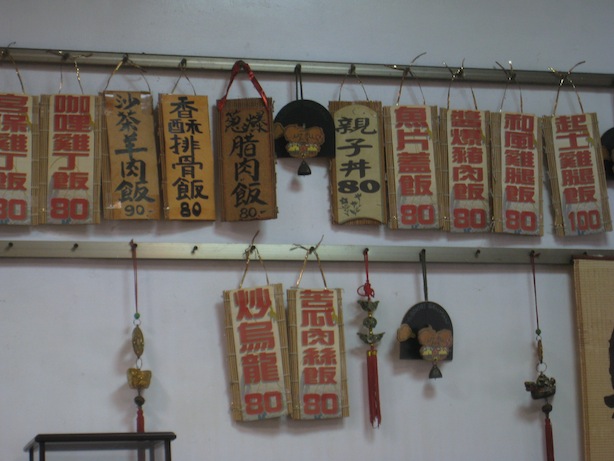 宮保雞丁飯
80
咖哩雞丁飯
80
沙茶羊肉飯
90-
香酥排骨飯
80
蔥爆腊肉飯
80-
親子丼
80
魚片蓋飯
80
醬爆豬肉飯
80
和風雞腿飯
80
起士雞腿飯
100
炒烏龍
80
苦瓜肉絲飯
80